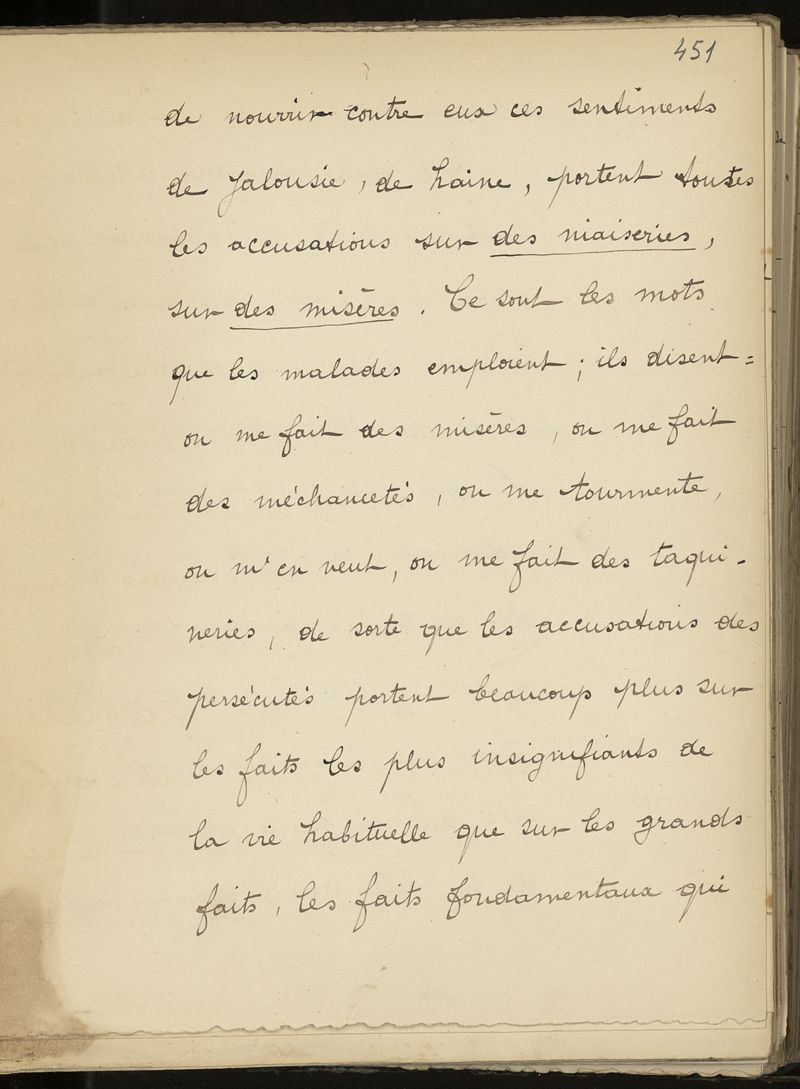 451
de nourrir contre eux ces sentiments
de jalousie, de haine, portent toutes
les accusations sur des niaiseries,
sur des misères. Ce sont les mots
que les malades emploient ; ils disent =
on me fait des misères, on me fait
des méchancetés, on me tourmente,
on m'en veut, on me fait des taqui-
neries, de sorte que les accusations des
persécutés portent beaucoup plus sur
les faits les plus insignifiants de
la vie habituelle que sur les grands
faits, les faits fondamentaux qui